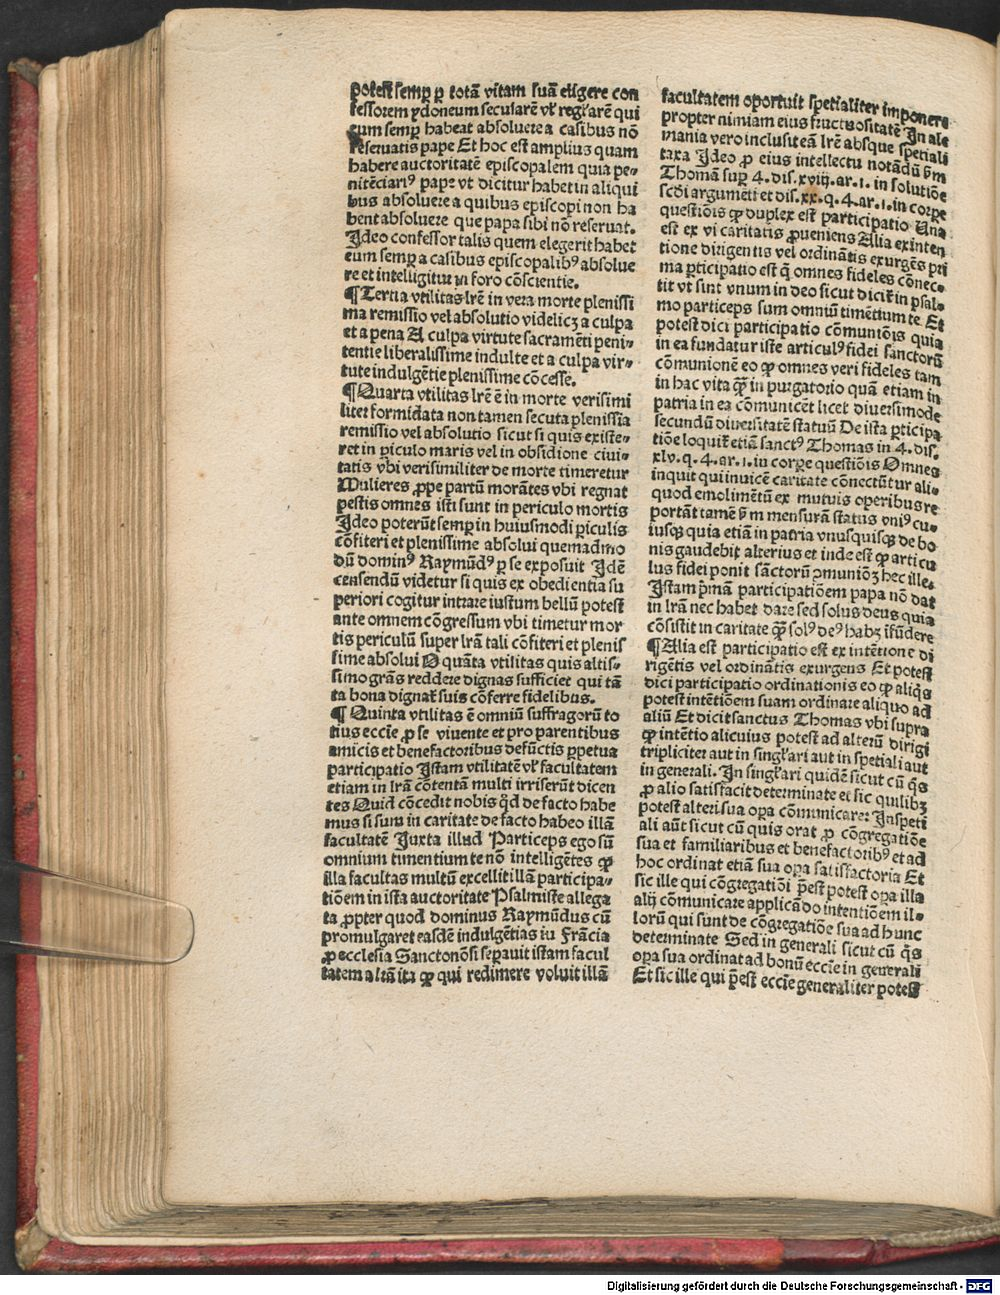 potest semꝑ ꝑ totā vitam suā eligere con
fessorem ydoneum secularē vl' regl'arē qui
eum semꝑ habeat absoluere a casibus nō
reseruatis pape Et hoc est amplius quam
habere auctoritatē episcopalem quia pe⸗
nitēciariꝰ pape vt dicitur habet in aliqui
bus absoluere a quibus episcopi non ha
bent absoluere que papa sibi nō reseruat.
Ideo confessor talis quem elegerit habet
eum semꝑ a casibus episcopalibꝰ absolue
re et intelligitur in foro cōscientie.
¶ Tertia vtilitas lr̄e in vera morte plenissi
ma remissio vel absolutio videlicꝫ a culpa
et a pena A culpa virtute sacramēti peni⸗
tentie liberalissime indulte et a culpa vir⸗
tute indulgētie plenissime cōcesse.
¶ Quarta vtilitas lr̄e ē in morte verisimi
liter formidata non tamen secuta plenissīa
remissio vel absolutio sicut si quis existe⸗
ret in ꝑiculo maris vel in obsidione ciui⸗
tatis vbi verisimiliter de morte timeretur
Mulieres ꝓpe partū morātes vbi regnat
pestis omnes isti sunt in periculo mortis
Ideo poterūt semꝑ in huiusmodi ꝑiculis
cōfiteri et plenissime absolui quemadmo
dū dominꝰ Raymūdꝰ ꝑ se exposuit Idē
censendū videtur si quis ex obedientia su
periori cogitur intrare iustum bellū potest
ante omnem cōgressum vbi timetur mor
tis periculū super lr̄ā tali cōfiteri et pleniss
sime absolui O quāta vtilitas quis altis⸗
simo grās reddere dignas sufficiet qui tā
ta bona dignat̄ suis cōferre fidelibus.
¶ Quinta vtilitas ē omniū suffragorū to
tius eccīe ꝓ se viuente et pro parentibus
amicis et benefactoribus defūctis ꝑpetua
participatio Istam vtilitatē vl' facultatem
etiam in lr̄ā cōtentā multi irriserūt dicen
tes Quid cōcedit nobis qd̄ de facto habe
mus si sum in caritate de facto habeo illā
facultatē Iuxta illud Particeps ego sū
omnium timentium te nō intelligētes ꝙ
illa facultas multū excellit illā participa⸗
tiōem in ista auctoritate Psalmiste allega
ta ꝓpter quod dominus Raymūdus cū
promulgaret easdē indulgētias in Frācia
ꝓ ecclesia Sanctonōsi seꝑauit istam facul
tatem a l̄ā ita ꝙ qui redimere voluit illā
facultatem oportuit spetialiter imponere
propter nimiam eius fructuositatē In ale
mania vero inclusit eā lr̄e absque spetiali
taxa Ideo ꝓ eius intellectu notādū ẜm
Thomā suꝑ 4. dis. xviij. ar. 1. in solutiōe
scd̄i argumēti et dis. xx. q. 4. ar. 1. in corꝑe
questiōis ꝙ duplex est participatio Una
est ex vi caritatis ꝓueniens Alia ex inten
tione dirigentis vel ordinātis exurgēs pri
ma ꝑticipatio est q̄ omnes fideles cōnec⸗
tit vt sint vnum in deo sicut dicit̄ in psal⸗
mo particeps sum omniū timētium te. Et
potest dici participatio cōmuniōis quia
in ea fundatur iste articulꝰ fidei sanctorū
cōmunionē eo ꝙ omnes veri fideles tam
in hac vita q̄ꝫ in purgatorio quā etiam in
patria in ea cōmunicēt licet diuersimode
secundū diuersitatē statuū De ista ꝑticipa
tiōe loquit̄ etiā sanctꝰ Thomas in 4. dis.
xlv. q. 4. ar. 1. in corꝑe questiōis Omnes
inquit qui inuicē caritate cōnectūtur ali⸗
quod emolimētū ex mutuis operibus re
portāt tamē ẜm mensurā status vniꝰ cu⸗
iusqꝫ quia etiā in patria vnusquisqꝫ de bo
nis gaudebit alterius et inde est ꝙ articu
lus fidei ponit sāctorū ꝯmuniōꝫ hec ille.
Istam pm̄ā participatiōem papa nō dat
in lr̄ā nec habet dare sed solus deus quia
cōsistit in caritate q̄ꝫ solꝰ deꝰ habꝫ īfūdere
¶ Alia est participatio est ex intētione di
rigētis vel ordinātis exurgens Et potest
dici participatio ordinationis eo ꝙ aliq̄s
potest intētiōem suam ordinare aliquo ad
aliū Et dicit sanctus Thomas vbi supra
ꝙ intētio alicuius potest ad alterū dirigi
tripliciter aut in singl'ari aut in spetiali aut
in generali. In singl'ari quidē sicut cū q̄s
ꝓ alio satisfacit determinate et sic quilibꝫ
potest alteri sua oꝑa cōmunicare: In speti
ali aūt sicut cū quis orat ꝓ cōgregatiōe
sua et familiaribus et benefactoribꝰ et ad
hoc ordinat etiā sua oꝑa satisfactoria Et
sic ille qui cōgregatiōi p̄est potest oꝑa illa
alij cōmunicare applicādo intentiōem il⸗
lorū qui sunt de cōgregatiōe sua ad hunc
determinate Sed in generali sicut cū q̄s
oꝑa sua ordinat ad bonū eccīe in generali
Et sic ille qui p̄est eccīe generaliter potest
Digitalisierung gefördert durch die Deutsche Forschungsgemeinschaft - DFG